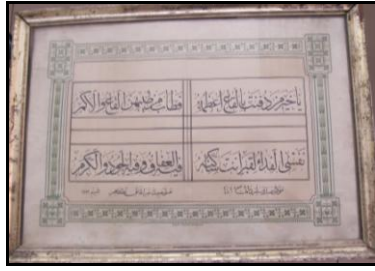 يا خير من دفنت بالقاع أعظمه فطاب من طيبهن القاع والأكم
نفسي الفداء لقبر أنت ساكنه فيه العفاف وفيه الجود والكرم